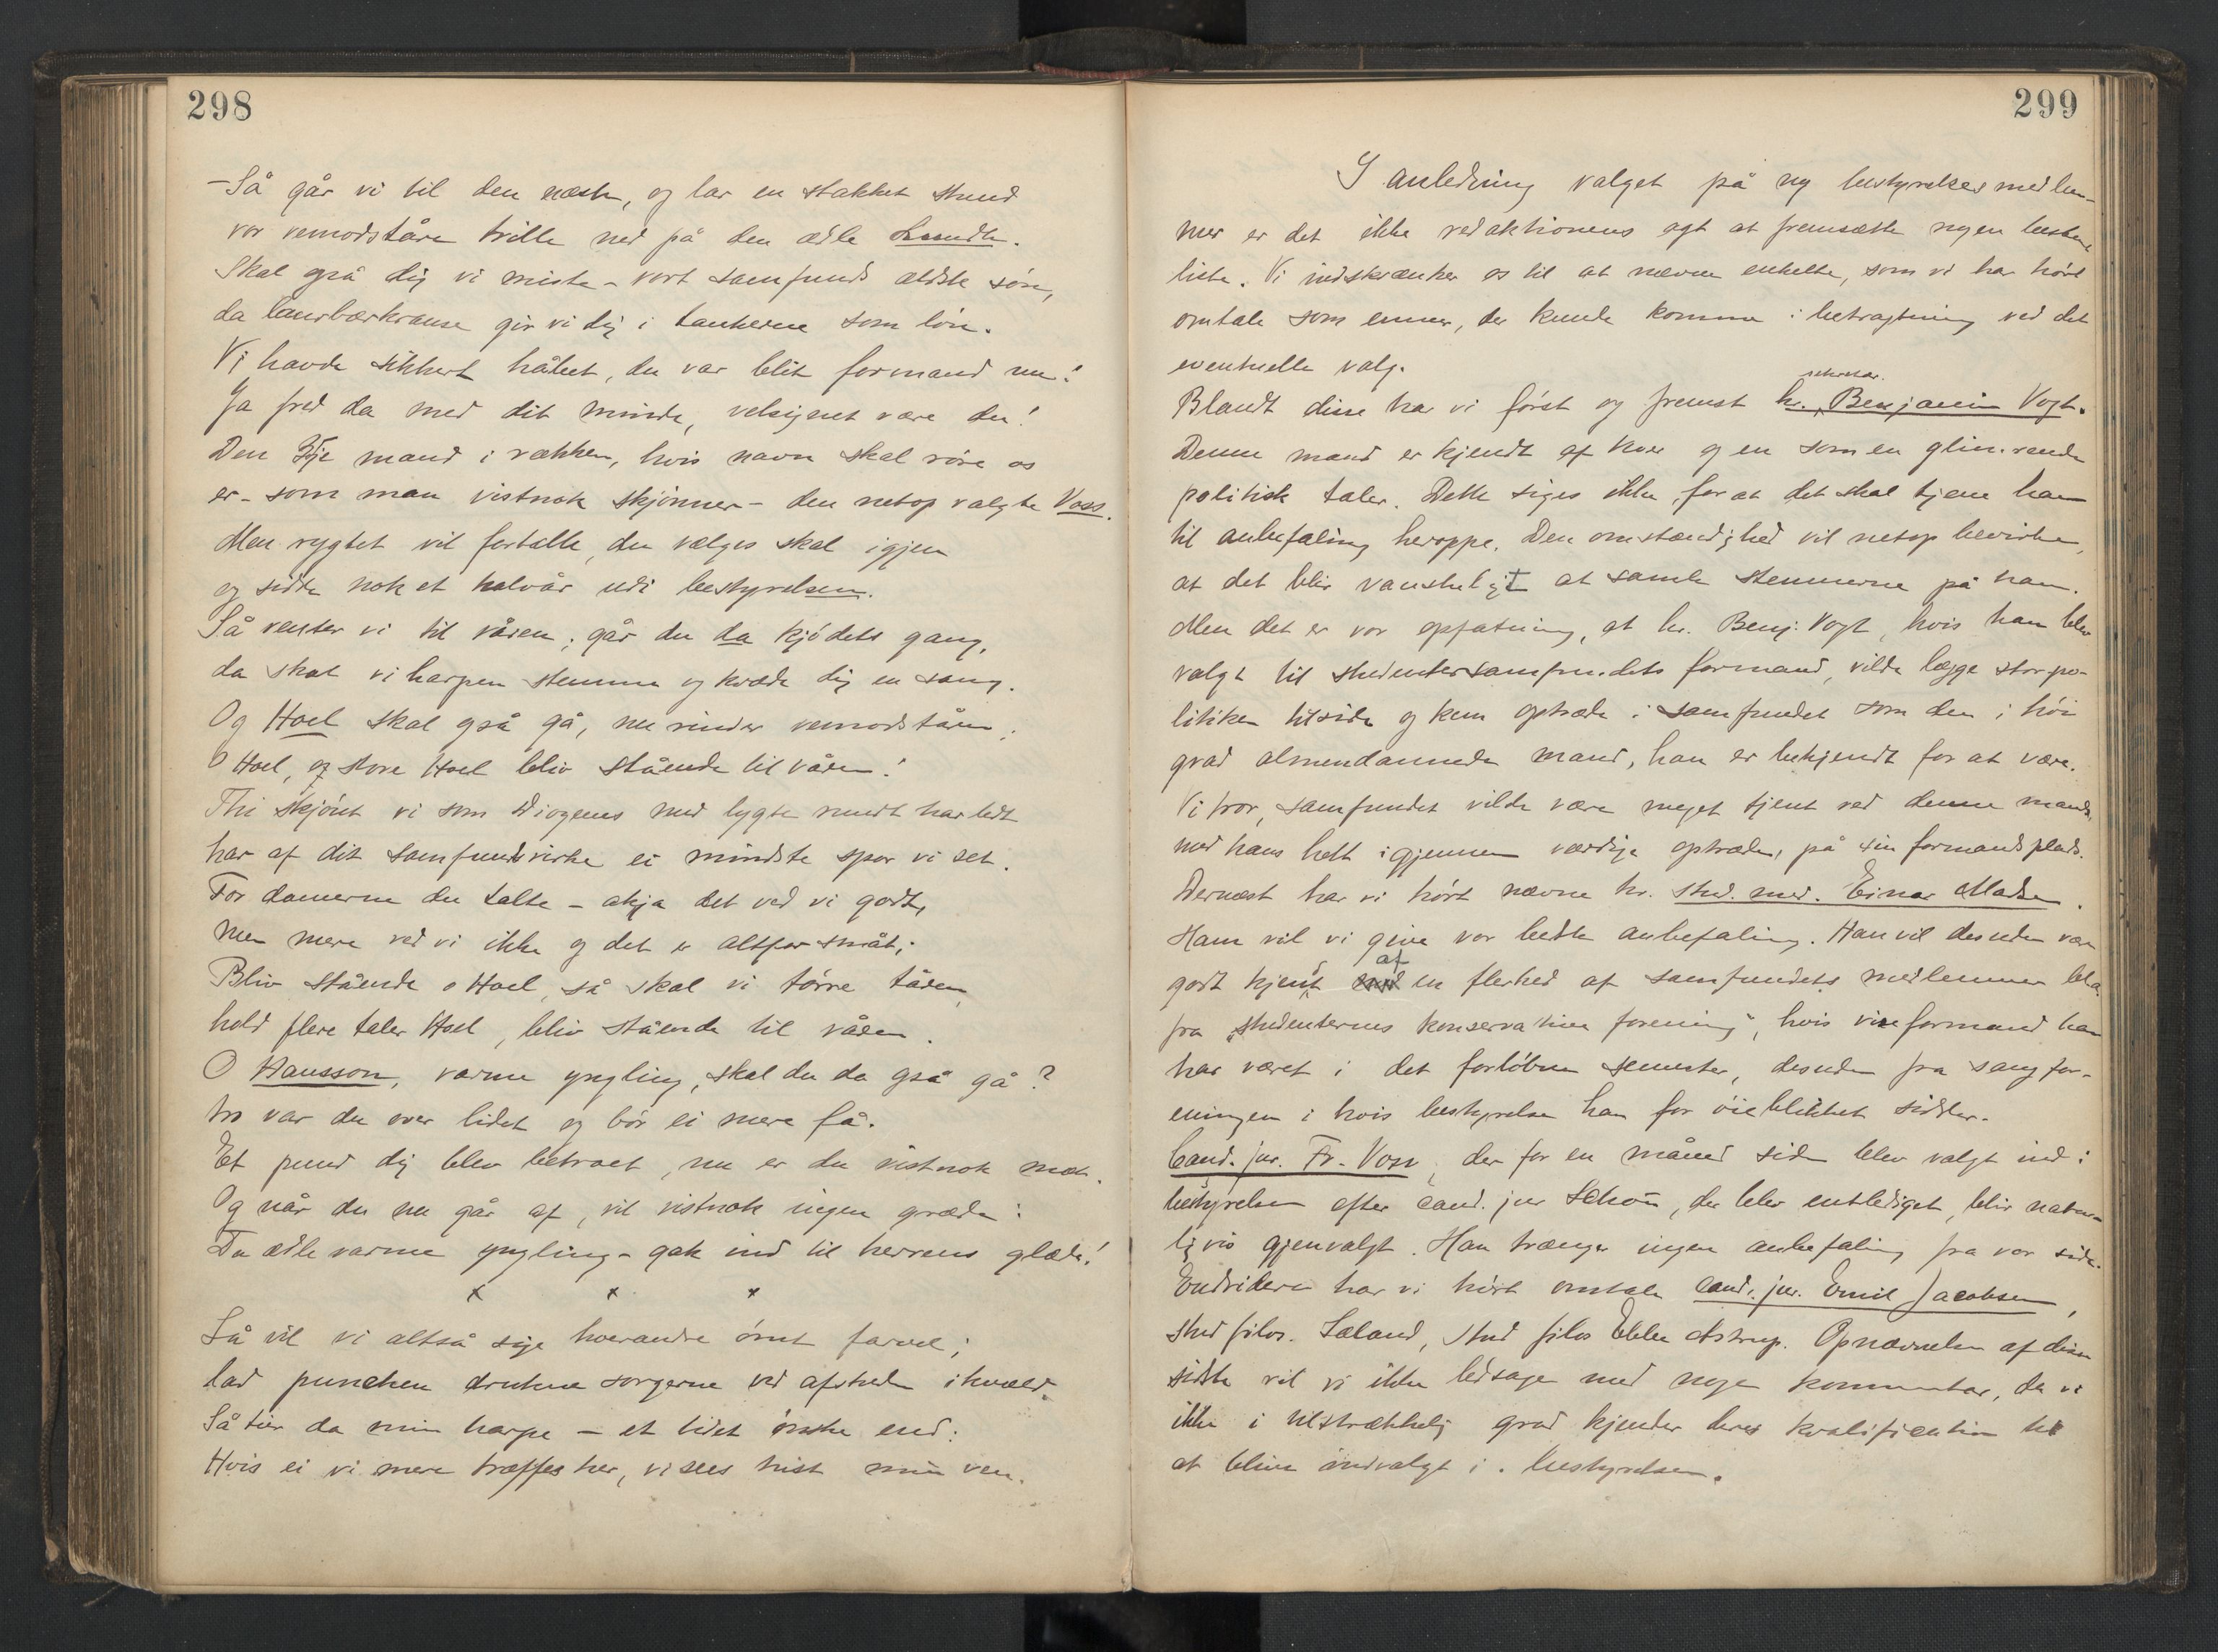 298
- Så går vi til den næste, og lar en stakket stund
vor vemodståre trille ned på den ædle
Skal også dig vi miste - vort samfunds ældste søn,
da laurbærkranse gir vi dig i tankerne som løn.
Vi havde sikkert håbet, du var blit formand nu!
Ja fred da med dit minde, velsignet være du!
Den 3dje mand i rækken, hvis navn skal røre os
er - som man vistnok skjønner - den netop valgte Voss.
Men rygtet vil fortælle, du vælges skal igjen
og sidde nok et halvår udi bestyrelsen.
Så venter vi til våren; går du da kjødets gang,
da skal vi harpen stemme og kvæde dig en sang.
Og Hoel skal også gå, nu rinder vemodståren;
O Hoel, o store Hoel bliv stående til våren!
Thi skjønt vi som Diogenes med lygte rundt har ledt
har af dit samfundsvirke ei mindste spor vi set.
For damerne du talte - akja det ved vi godt,
men mere ved vi ikke og det er altfor småt;
Bliv stående o Hoel, så skal vi tørre tåren,
hold flere taler Hoel, bliv stående til våren.
O Hansson, varme yngling, skal du da også gå?
tro var du over lidet og bør ei mere få.
Et pund dig blev betroet, nu er du vistnok mæt.
Og når du nu går af, vil vistnok ingen græde:
Du ædle varme yngling - gak ind til herrens glæde!
x x x
Så vil vi altså sige hverandre ømt farvel;
lad punchen drukne sorgerne ved afskeden ikvæld.
Så tier da min harpe - et lidet ønske end:
Hvis ei vi mere træffes her, vi sees hist min ven.
299
I anledning valget på ny bestyrelsesmedlem-
mer er det ikke redaktionens agt at fremsætte nogen bestemt
liste. Vi indskrænker os til at nævne enkelte, som vi har hørt
omtale som emner, der kunde komme i betragtning ved det
eventuelle valg.
sekretær.
Blandt disse har vi først og fremst hr. Benjamin Vogt.
Denne mand er kjendt af hver og en som en glimrende
politisk taler. Dette siges ikke, for at det skal tjene ham
til anbefaling heroppe. Den omstændighed vil netop bevirke,
at det blir vanskeligt at samle stemmerne på ham.
Men det er vor opfatning, at hr. Benj. Vogt, hvis han blev
valgt til studentersamfundets formand, vilde lægge storpo-
litiken tilside og kun optræde i samfundet som den i høi
grad almendannede mand, han er bekjendt for at være.
Vi tror, samfundet vilde være meget tjent ved denne mand,
med hans helt igjennem værdige optræden, på sin formandsplads.
Dernæst har vi hørt nævne hr. stud. med. Einar Madsen.
Ham vil vi give vor bedste anbefaling. Han vil desuden være
godt kjendt af en flerhed af samfundets medlemmer bl.a.
fra "studenternes konservative forening", hvis viseformand han
har været i det forløbne semester, desuden fra sangfor-
eningen i hvis bestyrelse han for øieblikket sidder.
Cand. jur. Fr. Voss, der for en måned siden blev valgt ind i
bestyrelsen efter cand. jur Schøn, der blev entlediget, blir natur-
ligvis gjenvalgt. Han trænger ingen anbefaling fra vor side.
Endvidere har vi hørt omtale cand. jur. Emil Jacobsen,
stud filos. Sæland, stud filos Ebbe Astrup. Opnævnelsen af disse
sidste vil vi ikke ledsage med nogen kommentar, da vi
ikke i tilstrækkelig grad kjender deres kvalifikation til
at blive indvalgt i bestyrelsen.